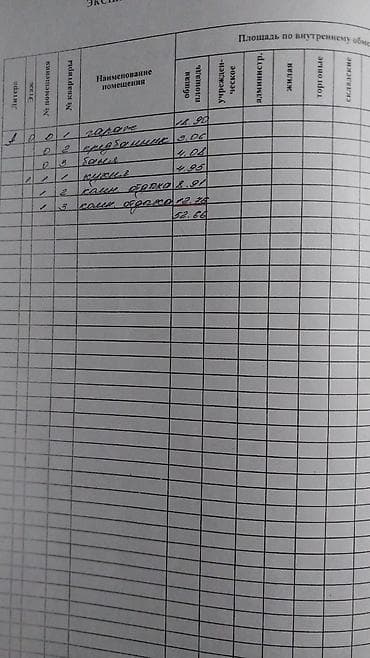 ЭКСП
Площадь по внутреннему обме
Литера
Этаж
№ помещения
№ квартиры
Наименование помещения
общая площадь
учрежден-ческое
администр.
жилая
торговые
складские
0 0 1 гараж 18.90
0 2 предбанник 3.06
0 3 баня 4.08
1 1 1 кухня 4.95
1 2 комн. отдыха 8.91
1 3 комн. отдыха 12.75
52.66